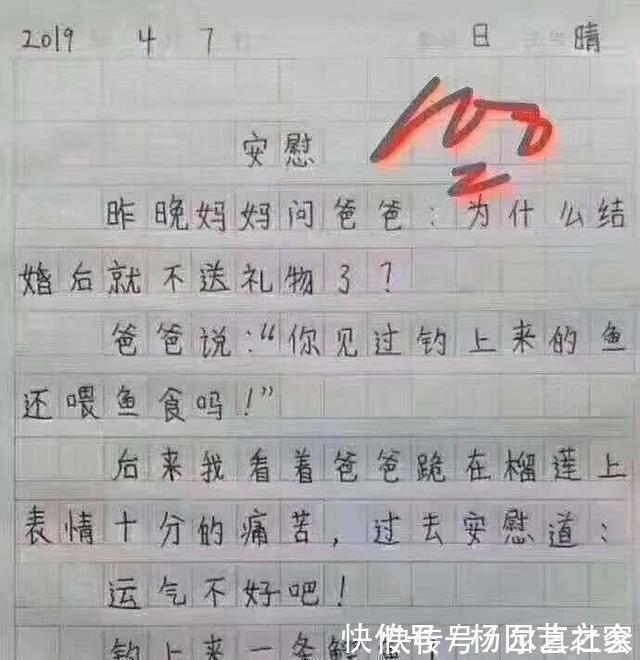 2019 4 7 日 晴
100
安慰
昨晚妈妈问爸爸：为什么结
婚后就不送礼物了？
爸爸说：“你见过钓上来的鱼
还喂鱼食吗！”
后来我看着爸爸跪在榴莲上
表情十分的痛苦，过去安慰道：
运气不好吧！
钓上来一条